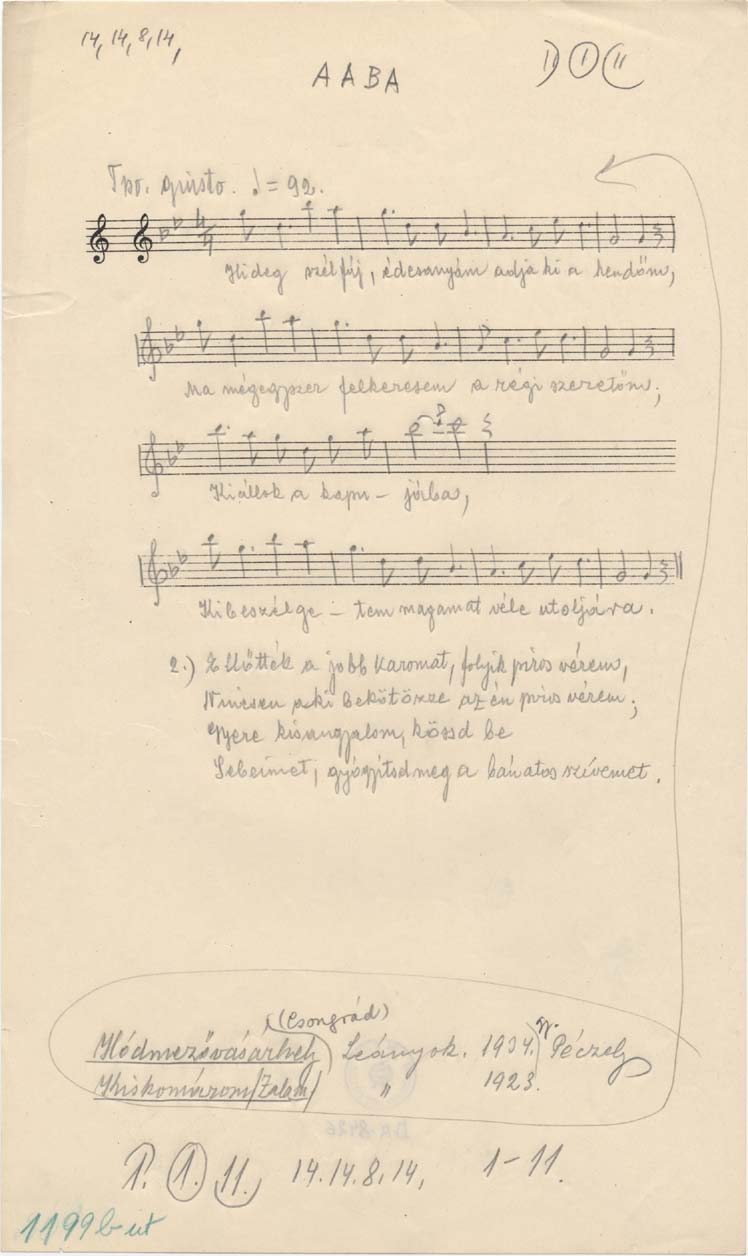 14, 14, 8, 14,
AABA
Tpo. giusto. ♩ = 92.
4/4
Hideg szél fúj, édesanyám adja ki a kendőm,
Ma mégegyszer felkeresem a régi szeretőm;
Kiállok a kapu - jukba,
Kibeszélge - tem magamat véle utoljára.
2.) Ellőtték a jobb karomat, folyik piros vérem,
Nincsen aki bekötözze az én piros vérem;
Gyere kisangyalom, kössd be
Sebeimet, gyógyítsd meg a bánatos szívemet.
(Csongrád)
Hódmezővásárhely Leányok. 1934. Gy. Péczely
Kiskomárom /Zala/ " 1923.
1. 1. 11. 14.14.8.14, 1-11.
1199b ut